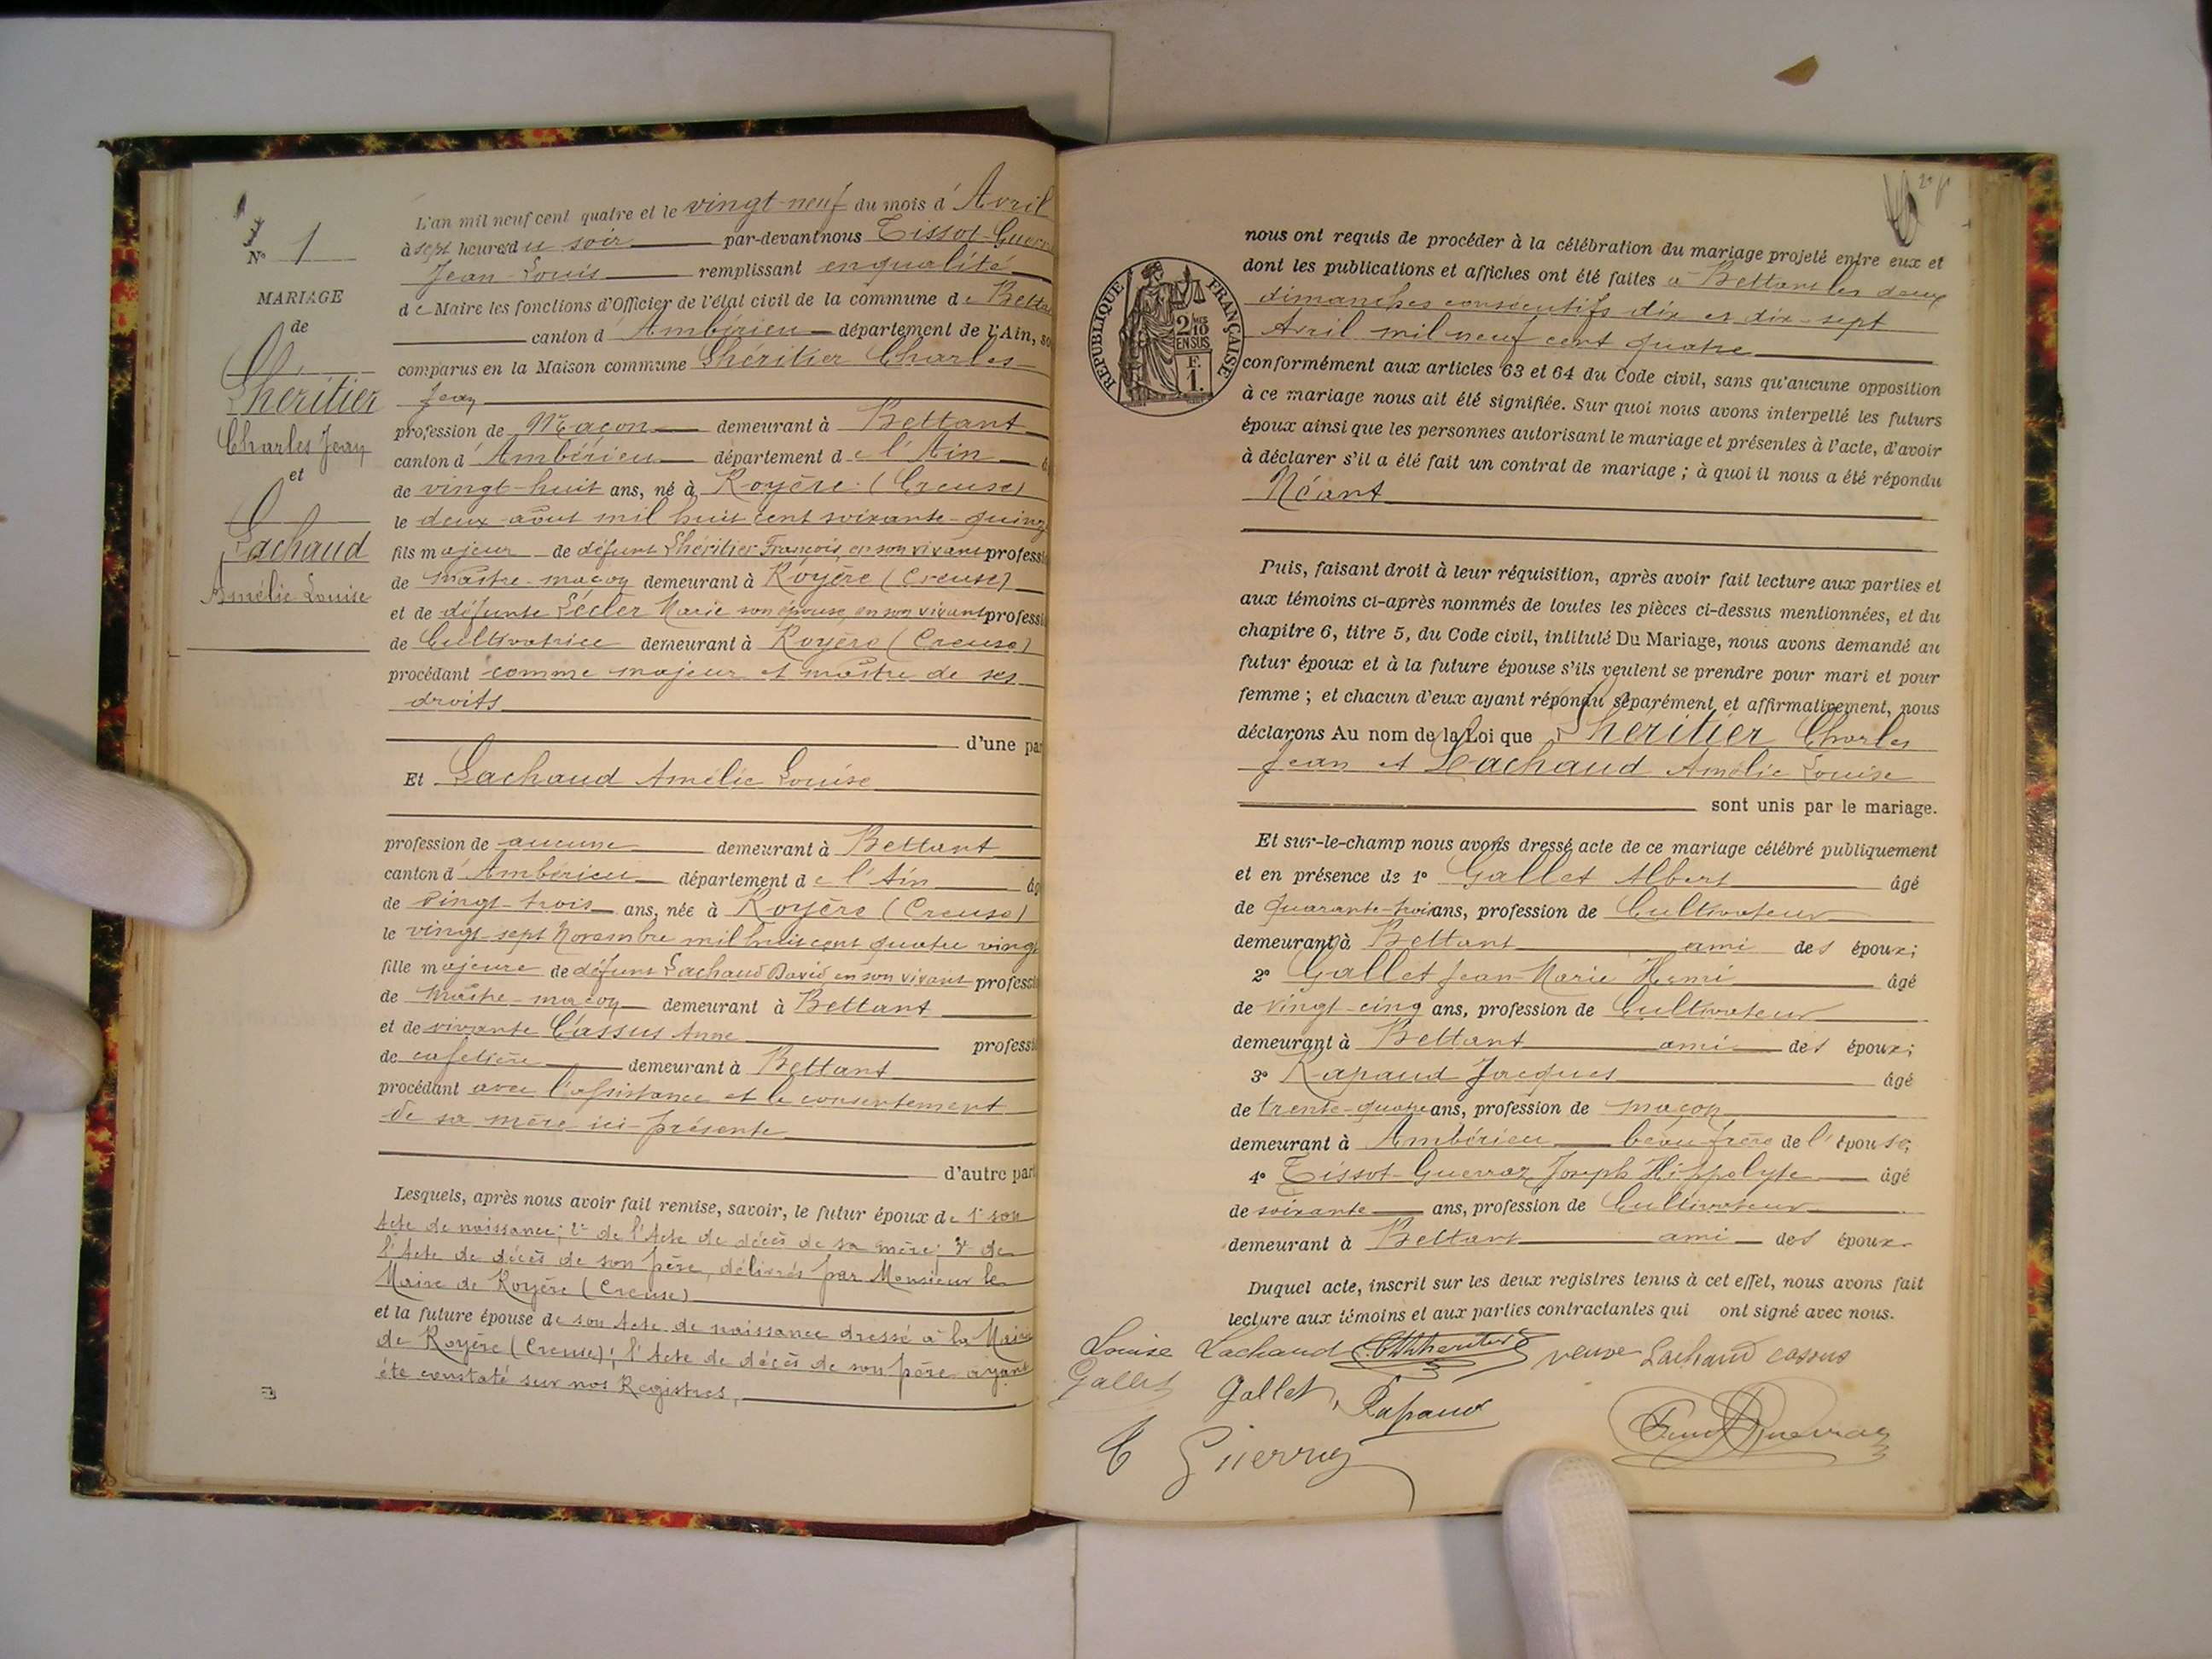 N° 1
MARIAGE
de
Lhéritier
Charles Jean
et
Lachaud
Amélie Louise
L'an mil neuf cent quatre et le vingt-neuf du mois d'Avril
à sept heures du soir par-devant nous Tissot-Guerr
Jean-Louis remplissant en qualité
de Maire les fonctions d'Officier de l'état civil de la commune de Betta
canton d'Ambérieu département de l'Ain, so
comparus en la Maison commune Lhéritier Charles
Jean
profession de Maçon demeurant à Bettant
canton d'Ambérieu département de l'Ain
de vingt-huit ans, né à Royère (Creuse)
le deux août mil huit cent soixante-quinz
fils majeur de défunt Lhéritier François, en son vivant professi
de maître-maçon demeurant à Royère (Creuse)
et de défunte Lécler Marie son épouse, en son vivant professi
de Cultivatrice demeurant à Royère (Creuse)
procédant comme majeur et maître de ses
droits
d'une pa
Et Lachaud Amélie Louise
profession de aucune demeurant à Bettant
canton d'Ambérieu département de l'Ain âg
de vingt-trois ans, née à Royère (Creuse)
le vingt-sept Novembre mil huit cent quatre vingt
fille majeure de défunt Lachaud David en son vivant professi
de maître-maçon demeurant à Bettant
et de vivante Cassus Anne professi
de cafetière demeurant à Bettant
procédant avec l'assistance et le consentement
de sa mère ici présente
d'autre part
Lesquels, après nous avoir fait remise, savoir, le futur époux de 1° son
Acte de naissance; 2° de l'Acte de décès de sa mère; 3° de
l'Acte de décès de son père, délivrés par Monsieur le
Maire de Royère (Creuse)
et la future épouse de son Acte de naissance dressé à la Mairie
de Royère (Creuse); l'Acte de décès de son père ayant
été constaté sur nos Registres,
RÉPUBLIQUE FRANÇAISE
2/10
EN SUS
F.
1.
nous ont requis de procéder à la célébration du mariage projeté entre eux et
dont les publications et affiches ont été faites à Bettant les deux
dimanches consécutifs dix et dix-sept
Avril mil neuf cent quatre
conformément aux articles 63 et 64 du Code civil, sans qu'aucune opposition
à ce mariage nous ait été signifiée. Sur quoi nous avons interpellé les futurs
époux ainsi que les personnes autorisant le mariage et présentes à l'acte, d'avoir
à déclarer s'il a été fait un contrat de mariage; à quoi il nous a été répondu
Néant
Puis, faisant droit à leur réquisition, après avoir fait lecture aux parties et
aux témoins ci-après nommés de toutes les pièces ci-dessus mentionnées, et du
chapitre 6, titre 5, du Code civil, intitulé Du Mariage, nous avons demandé au
futur époux et à la future épouse s'ils veulent se prendre pour mari et pour
femme; et chacun d'eux ayant répondu séparément et affirmativement, nous
déclarons Au nom de la Loi que Lheritier Charles
Jean et Lachaud Amélie Louise
sont unis par le mariage.
Et sur-le-champ nous avons dressé acte de ce mariage célébré publiquement
et en présence de 1° Gallet Albert âgé
de quarante-trois ans, profession de Cultivateur
demeurant à Bettant ami des époux;
2° Gallet Jean-Marie Henri âgé
de vingt-cinq ans, profession de Cultivateur
demeurant à Bettant ami des époux;
3° Rapaud Jacques âgé
de trente-quatre ans, profession de maçon
demeurant à Ambérieu beau-frère de l'épouse;
4° Tissot-Guerraz Joseph Hippolyte âgé
de soixante ans, profession de Cultivateur
demeurant à Bettant ami des époux.
Duquel acte, inscrit sur les deux registres tenus à cet effet, nous avons fait
lecture aux témoins et aux parties contractantes qui ont signé avec nous.
Louise Lachaud veuve Lachaud cassus
Gallet Gallet, Rapaud